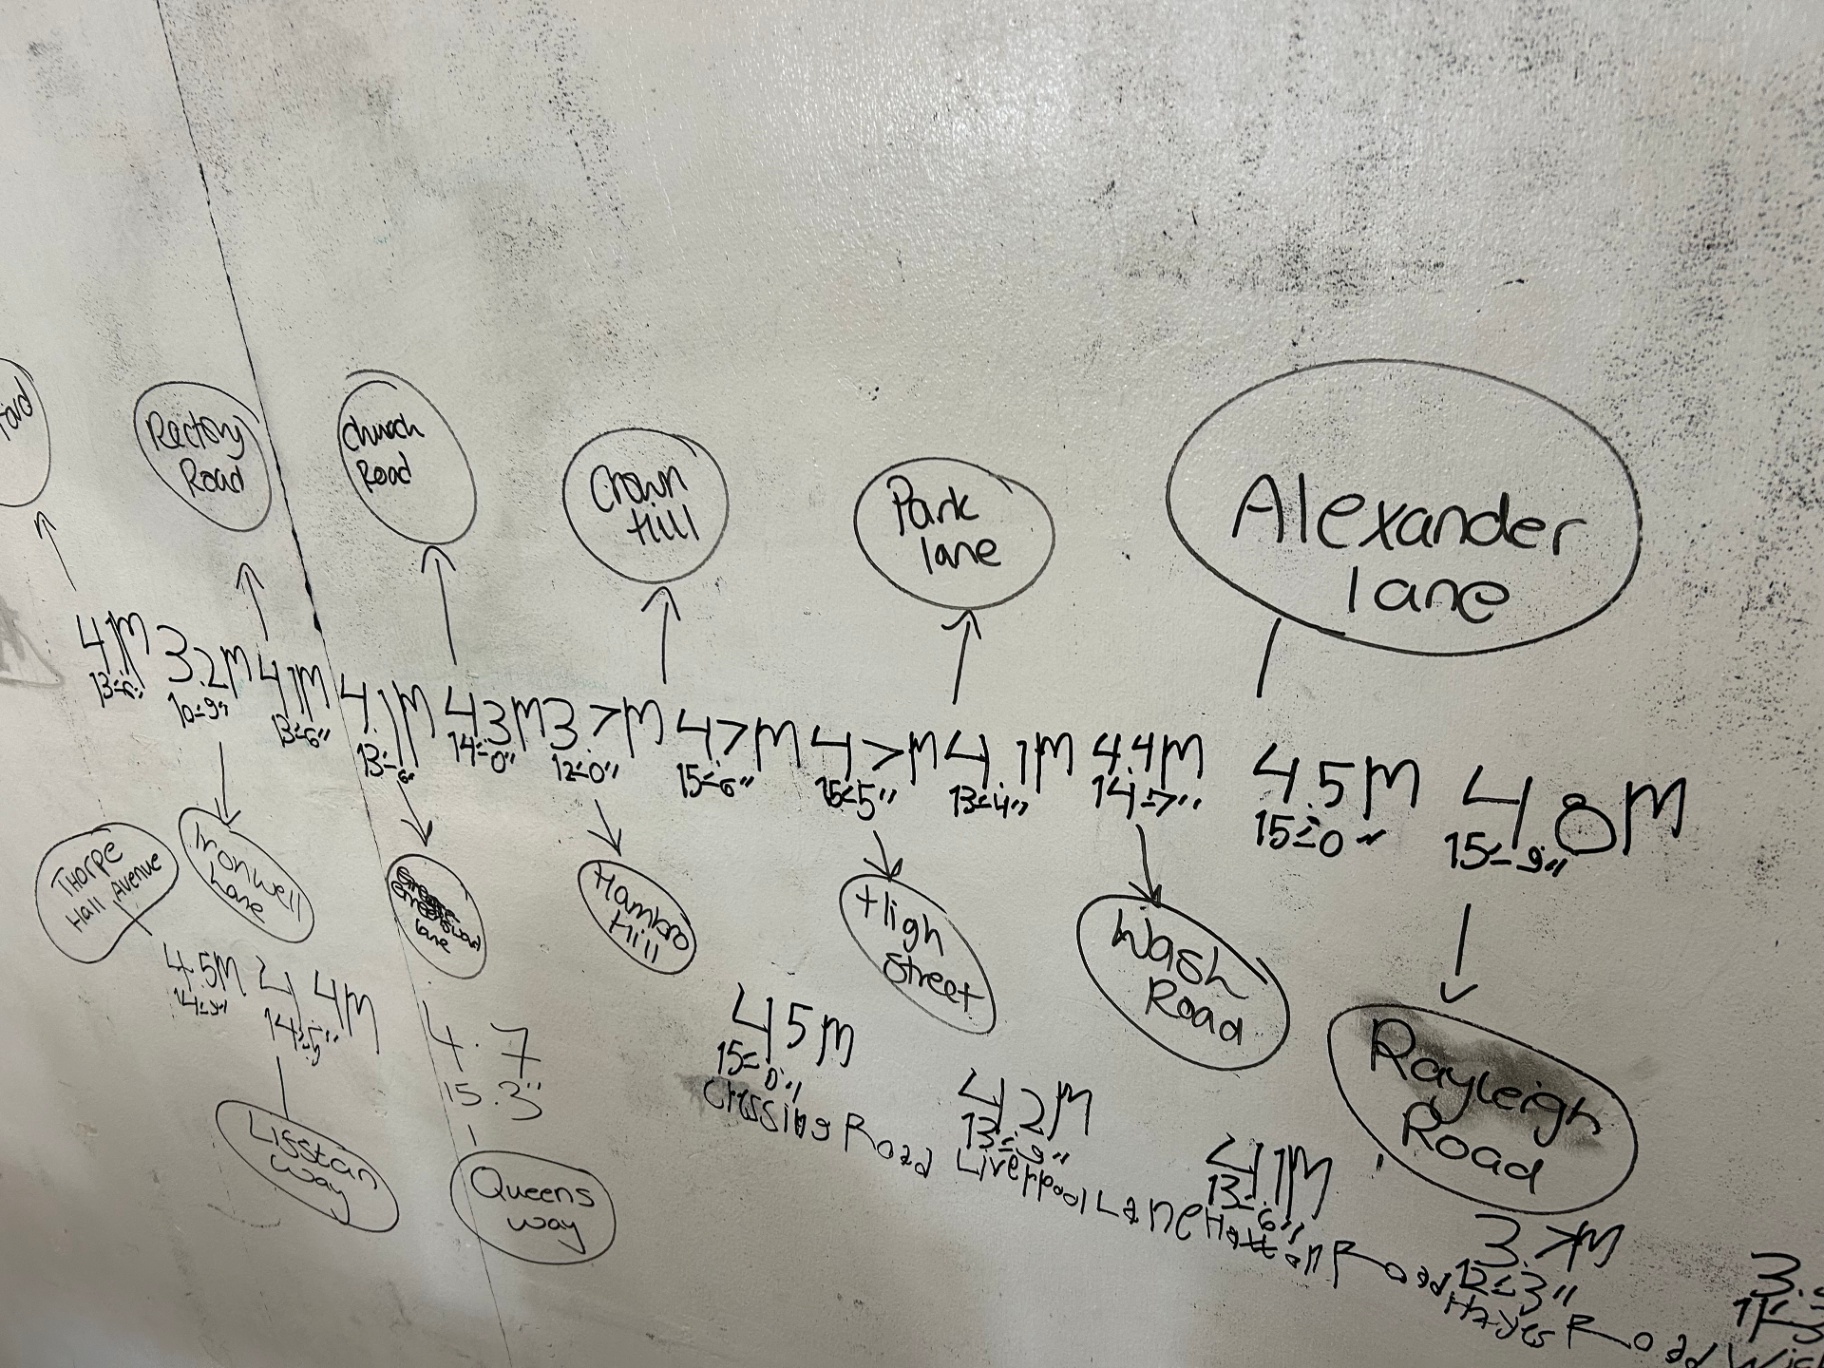 Rectory
Road
Church
Road
Crown
Hill
Park
lane
Alexander
lane
4.1M 3.2M 4.1M 4.1M 4.3M 3.7M 4.7M 4.7M 4.1M 4.4M 4.5M 4.8M
10-9" 13-6" 13-6" 14-0" 12-0" 15-6" 15-5" 13-4" 14-7" 15-0" 15-9"
Thorpe
Hall Avenue
Ironwell
Lane
lane
Hambro
Hill
High
Street
Wash
Road
Rayleigh
Road
4.5M 4.4M
14-5"
Lisstan
way
4.7
15.3"
Queens
way
4.5M
15-0"
Crossing Road
4.2M
13-9"
Liverpool Lane
4.1M
13-6"
Hattan Road
3.7M
12-3"
Hayes Road